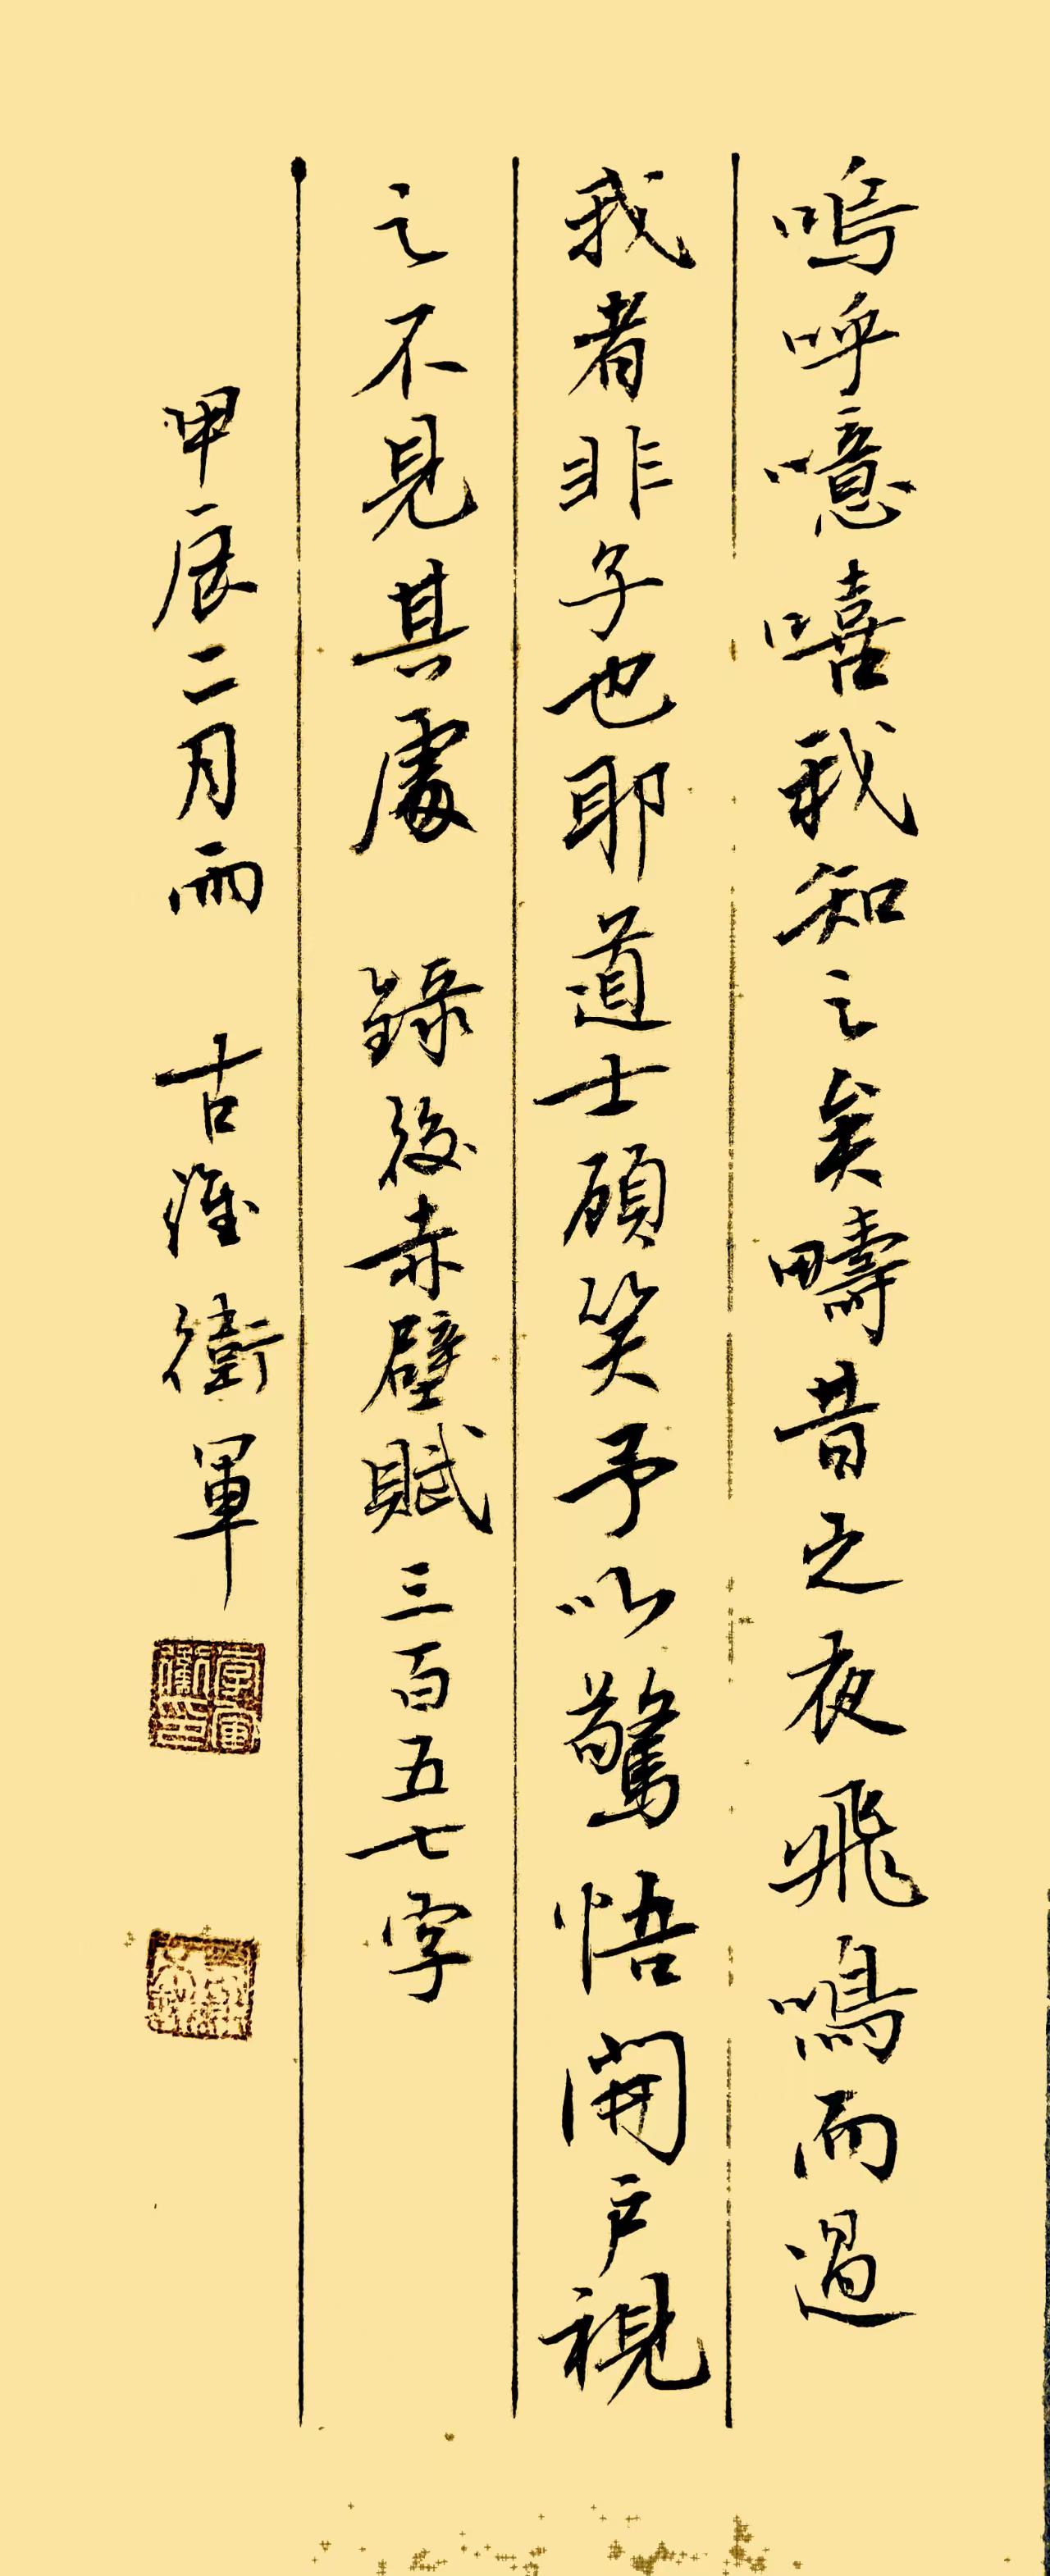 嗚呼噫嘻我知之矣疇昔之夜飛鳴而過
我者非子也耶道士顧笑予以驚悟開戶視
之不見其處 錄後赤壁賦三百五七字
甲辰二月雨 古濰衛軍